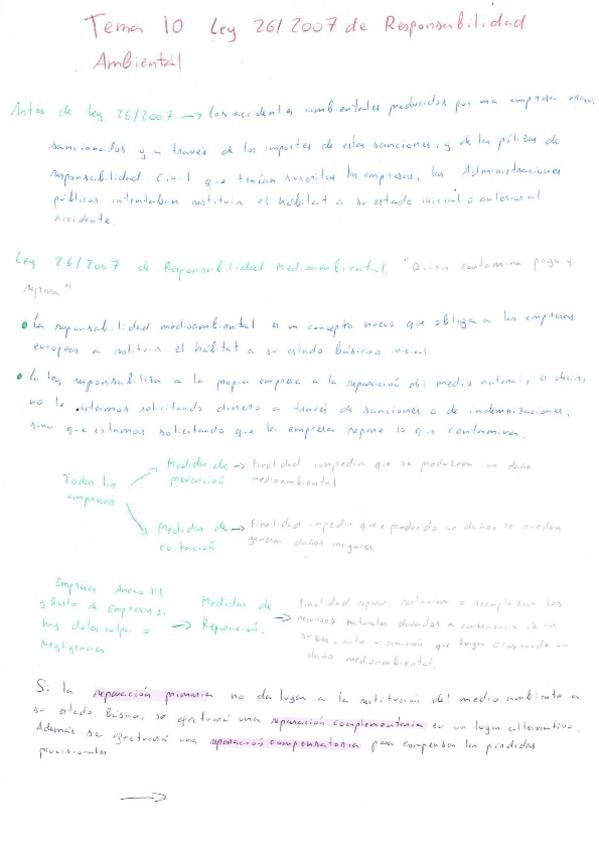 Tema 10 Ley 26/2007 de Responsabilidad
Ambiental
Antes de Ley 26/2007 → Los accidentes ambientales producidos por una empresa eran
sancionados y a través de los importes de estas sanciones, y de las pólizas de
responsabilidad Civil que tenían suscritas las empresas, las Administraciones
públicas intentaban restituir el hábitat a su estado inicial o anterior al
accidente.
Ley 26/2007 de Responsabilidad Medioambiental, "Quien contamina paga y
repara"
• La responsabilidad medioambiental es un concepto nuevo que obliga a las empresas
europeas a restituir el hábitat a su estado básico inicial.
• La ley responsabiliza a la propia empresa a la reparación del medio natural, es decir,
no le estamos solicitando dinero a través de sanciones o de indemnizaciones,
sino que estamos solicitando que la empresa repare lo que contamina.
Todas las
empresas
Medidas de
prevención → Finalidad impedir que se produzca un daño
medioambiental
Medidas de
evitación → Finalidad impedir que producido un daños se puedan
generar daños mayores
Empresas Anexo III
y Resto de empresas si
hay dolo, culpa o
negligencia → Medidas de
Reparación. → Finalidad reparar, restaurar o reemplazar los
recursos naturales dañados a consecuencia de un
suceso, acto u omisión que haya ocasionado un
daño medioambiental.
Si la reparación primaria no da lugar a la restitución del medio ambiente a
su estado Básico, se efectuará una reparación complementaria en un lugar alternativo.
Además se efectuará una reparación compensatoria para compensar las pérdidas
provisionales
→